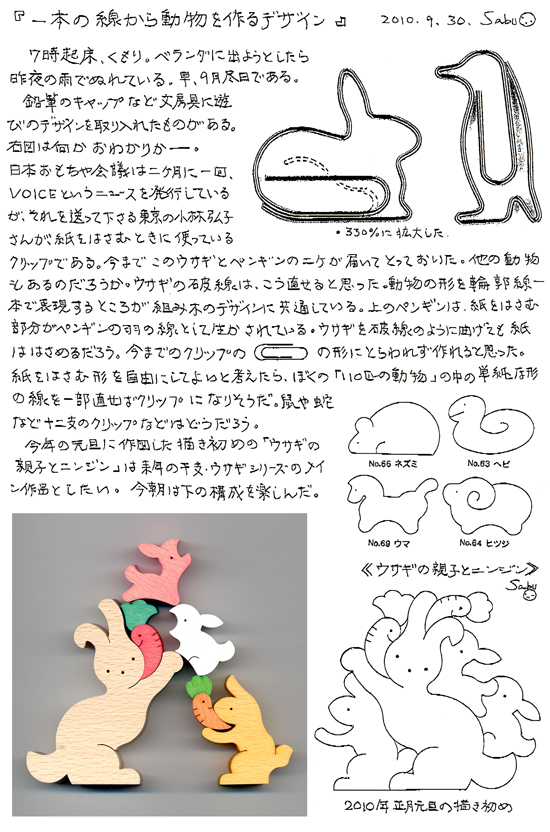 『一本の線から動物を作るデザイン』 2010.9.30. Sabu
7時起床、くもり。ベランダに出ようとしたら
昨夜の雨でぬれている。早、9月尽日である。
鉛筆のキャップなど文房具に遊
びのデザインを取り入れたものがある。
右図は何かおわかりかー。
日本おもちゃ会議は二ヶ月に一回、
VOICEというニュースを発行している
が、それを送って下さる東京の小林弘子
さんが、紙をはさむときに使っている
・330%に拡大した.
クリップである。今までこのウサギとペンギンの二ケが届いてとっておいた。他の動物
もあるのだろうか。ウサギの破線は、こう直せると思った。動物の形を輪郭線一
本で表現するところが組み木のデザインに共通している。上のペンギンは、紙をはさむ
部分がペンギンの羽の線として生かされている。ウサギを破線のように曲げても紙
ははさめるだろう。今までのクリップの の形にとらわれず作れると思った。
紙をはさむ形を自由にしてよいと考えたら、ぼくの「110匹の動物」の中の単純な形
の線を一部直せばクリップになりそうだ。鼠や蛇
など十二支のクリップなどはどうだろう。
今年の元旦に作図した描き初めの「ウサギの
親子とニンジン」は来年の干支・ウサギシリーズのメイ
ン作品としたい。今朝は下の構成を楽しんだ。
No.66 ネズミ
No.63 ヘビ
No.69 ウマ
No.64 ヒツジ
《ウサギの親子とニンジン》
Sabu
2010年正月元旦の描き初め